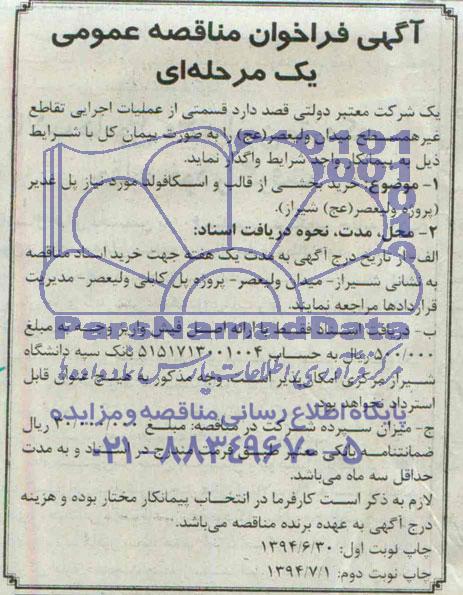 آگهی فراخوان مناقصه عمومی
یک مرحله‌ای
یک شرکت معتبر دولتی قصد دارد قسمتی از عملیات اجرایی تقاطع
غیرهمسطح میدان ولیعصر(عج) را به صورت پیمان کل با شرایط
ذیل به پیمانکار واجد شرایط واگذار نماید.
۱- موضوع: خرید بخشی از قالب و اسکافولد مورد نیاز پل غدیر
(پروژه ولیعصر(عج) شیراز).
۲- محل، مدت، نحوه دریافت اسناد:
الف- از تاریخ درج آگهی به مدت یک هفته جهت خرید اسناد مناقصه
به نشانی شیراز- میدان ولیعصر- پروژه پل کابلی ولیعصر- مدیریت
قراردادها مراجعه نمایند.
ب- دریافت اسناد فقط با ارائه اصل فیش واریز وجه به مبلغ
۵۰۰/۰۰۰ ریال به حساب ۵۱۵۱۷۱۳۰۰۱۰۰۴ بانک سپه دانشگاه
شیراز مرکزی امکان‌پذیر است. وجه مذکور به هیچ عنوان قابل
استرداد نخواهد بود.
ج- میزان سپرده شرکت در مناقصه: مبلغ ریال
ضمانتنامه بانکی معتبر طبق فرمت مندرج در اسناد و به مدت
حداقل سه ماه می‌باشد.
لازم به ذکر است کارفرما در انتخاب پیمانکار مختار بوده و هزینه
درج آگهی به عهده برنده مناقصه می‌باشد.
چاپ نوبت اول: ۱۳۹۴/۶/۳۰
چاپ نوبت دوم: ۱۳۹۴/۷/۱
ParsNamadData
مرکز فرآوری اطلاعات پارس نماد داده‌ها
پایگاه اطلاع رسانی مناقصه و مزایده
۰۲۱-۸۸۳۴۹۶۷۰-۵